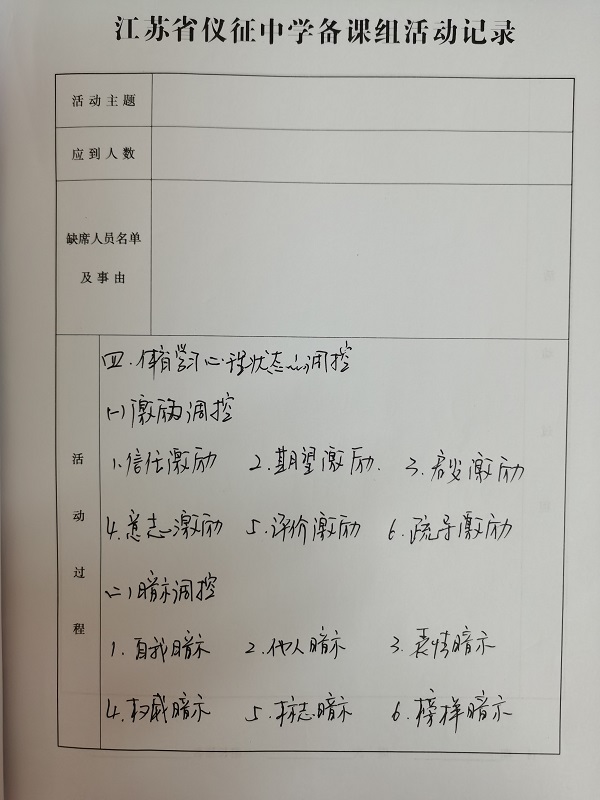 江苏省仪征中学备课组活动记录
活动主题
应到人数
缺席人员名单
及事由
活动过程
四.体育学习心理状态的调控
(一)激励调控
1.信任激励 2.期望激励. 3.启发激励
4.意志激励 5.评价激励 6.疏导激励
(二)暗示调控
1.自我暗示 2.他人暗示 3.表情暗示
4.权威暗示 5.标志暗示 6.榜样暗示